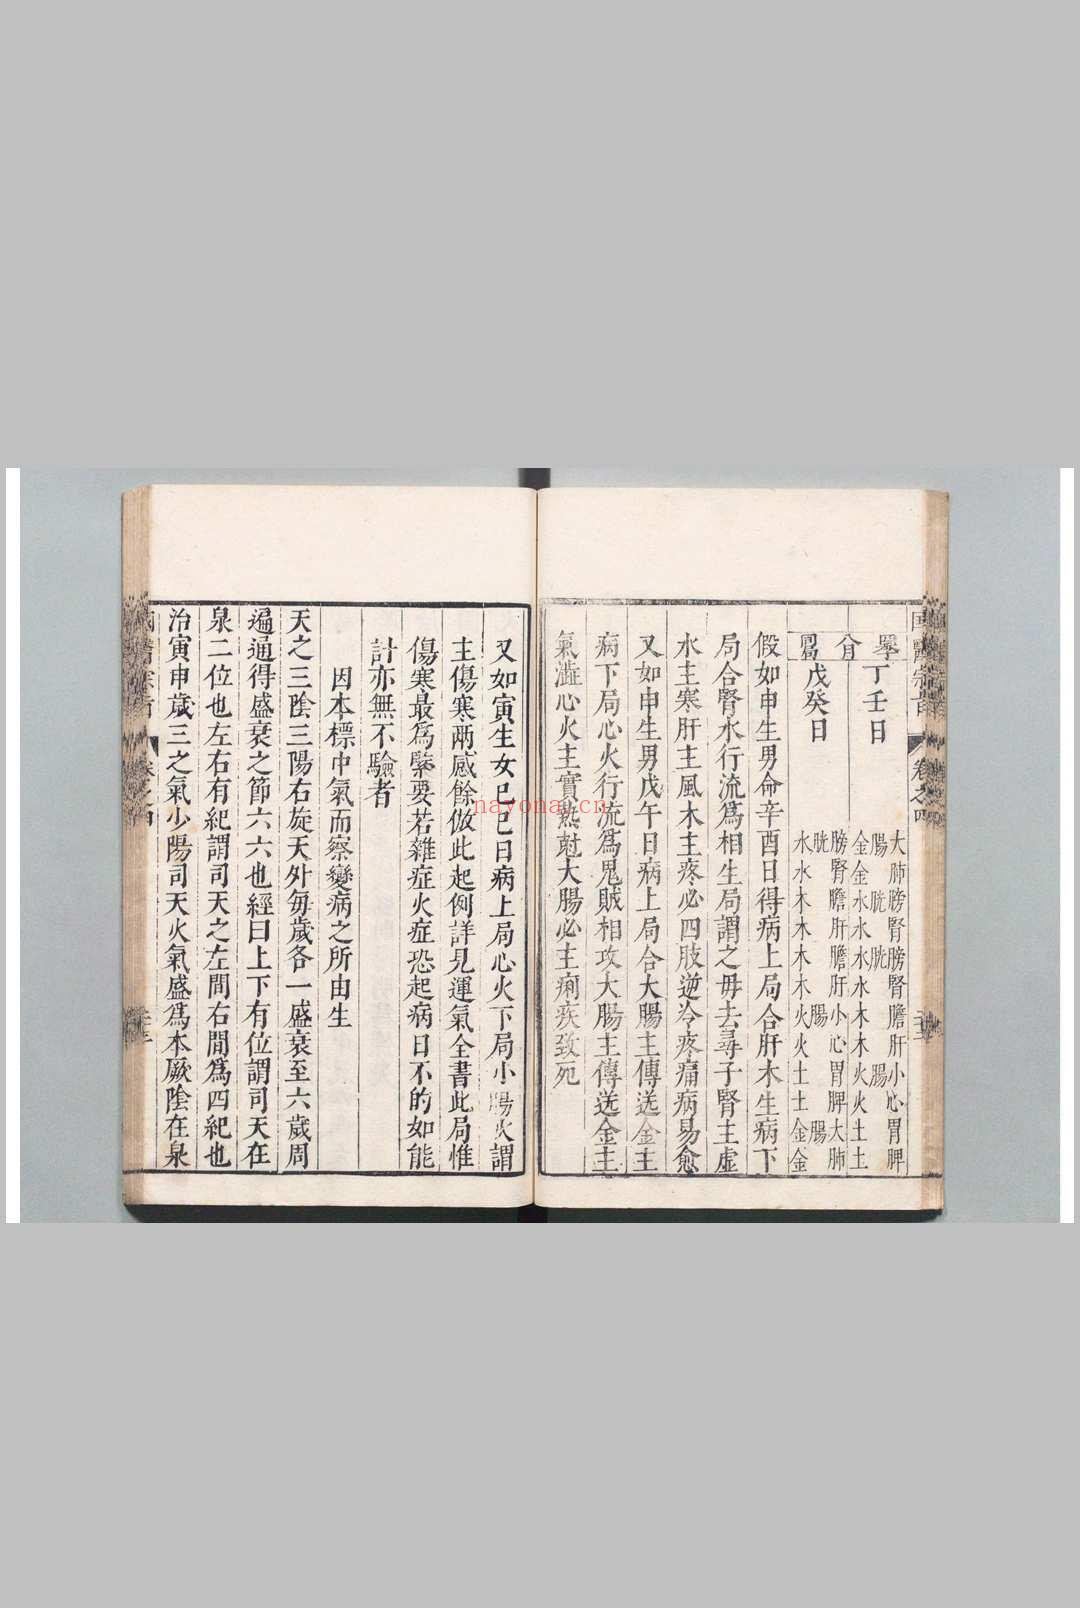 國醫宗旨 卷之四
丁壬日
大肺膀腎膀腎膽肝小心胃脾
腸 胱 胱 腸
金金水水水水木木火火土土
戊癸日
膀腎膽肝膽肝小心胃脾大肺
胱 腸 腸
水水木木木木火火土土金金
假如申生男命辛酉日得病上局合肝木生病下
局合腎水行流為相生局謂之毋去尋子腎主虛
水主寒肝主風木主疼必四肢逆冷疼痛病易愈
又如申生男戊午日病上局合大腸主傳送金主
病下局心火行流為鬼賊相攻大腸主傳送金主
氣澁心火主實熱尅大腸必主痢疾致死
又如寅生女巳巳日病上局心火下局小腸火謂
主傷寒兩感餘倣此起例詳見運氣全書此局惟
傷寒最為緊要若雜症火症恐起病日不的如能
計亦無不驗者
因本標中氣而察變病之所由生
天之三陰三陽右旋天外毎歲各一盛衰至六歲周
遍通得盛衰之節六六也經曰上下有位謂司天在
泉二位也左右有紀謂司天之左間右間為四紀也
治寅申歲三之氣少陽司天火氣盛為本厥陰在泉
nayona.cn